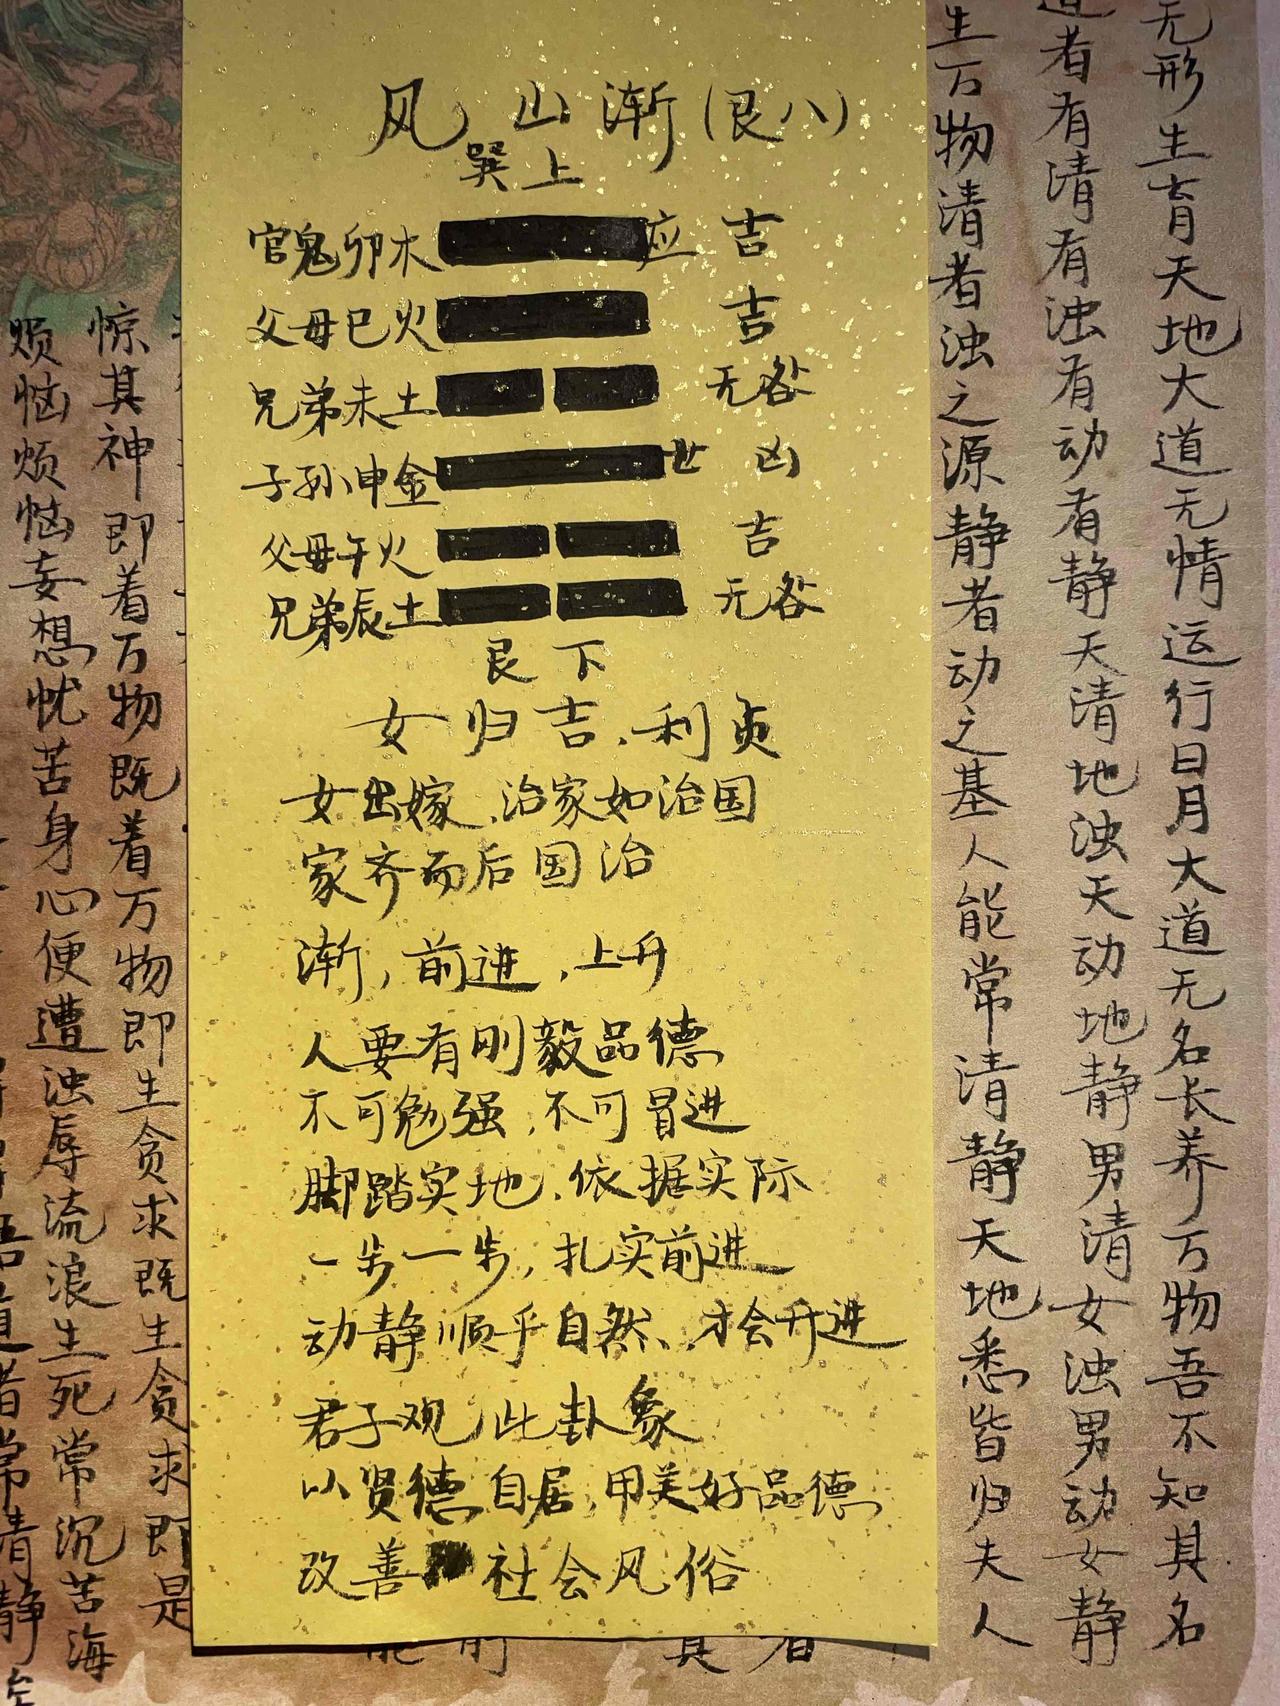 无形生育天地大道无情运行日月大道无名长养万物吾不知其名
道者有清有浊有动有静天清地浊天动地静男清女浊男动女静
生万物清者浊之源静者动之基人能常清静天地悉皆归夫人
风山渐(艮八)
巽上
官鬼卯木 应 吉
父母巳火 吉
兄弟未土 无咎
子孙申金 世 凶
父母午火 吉
兄弟辰土 无咎
艮下
女归吉,利贞
女出嫁,治家如治国
家齐而后国治
渐,前进,上升
人要有刚毅品德
不可勉强,不可冒进
脚踏实地,依据实际
一步一步,扎实前进
动静顺乎自然,才会升进
君子观此卦象
以贤德自居,用美好品德
改善社会风俗
惊其神即着万物既着万物即生贪求既生贪求即是
烦恼烦恼妄想忧苦身心便遭浊辱流浪生死常沉苦海
悟道者常清静